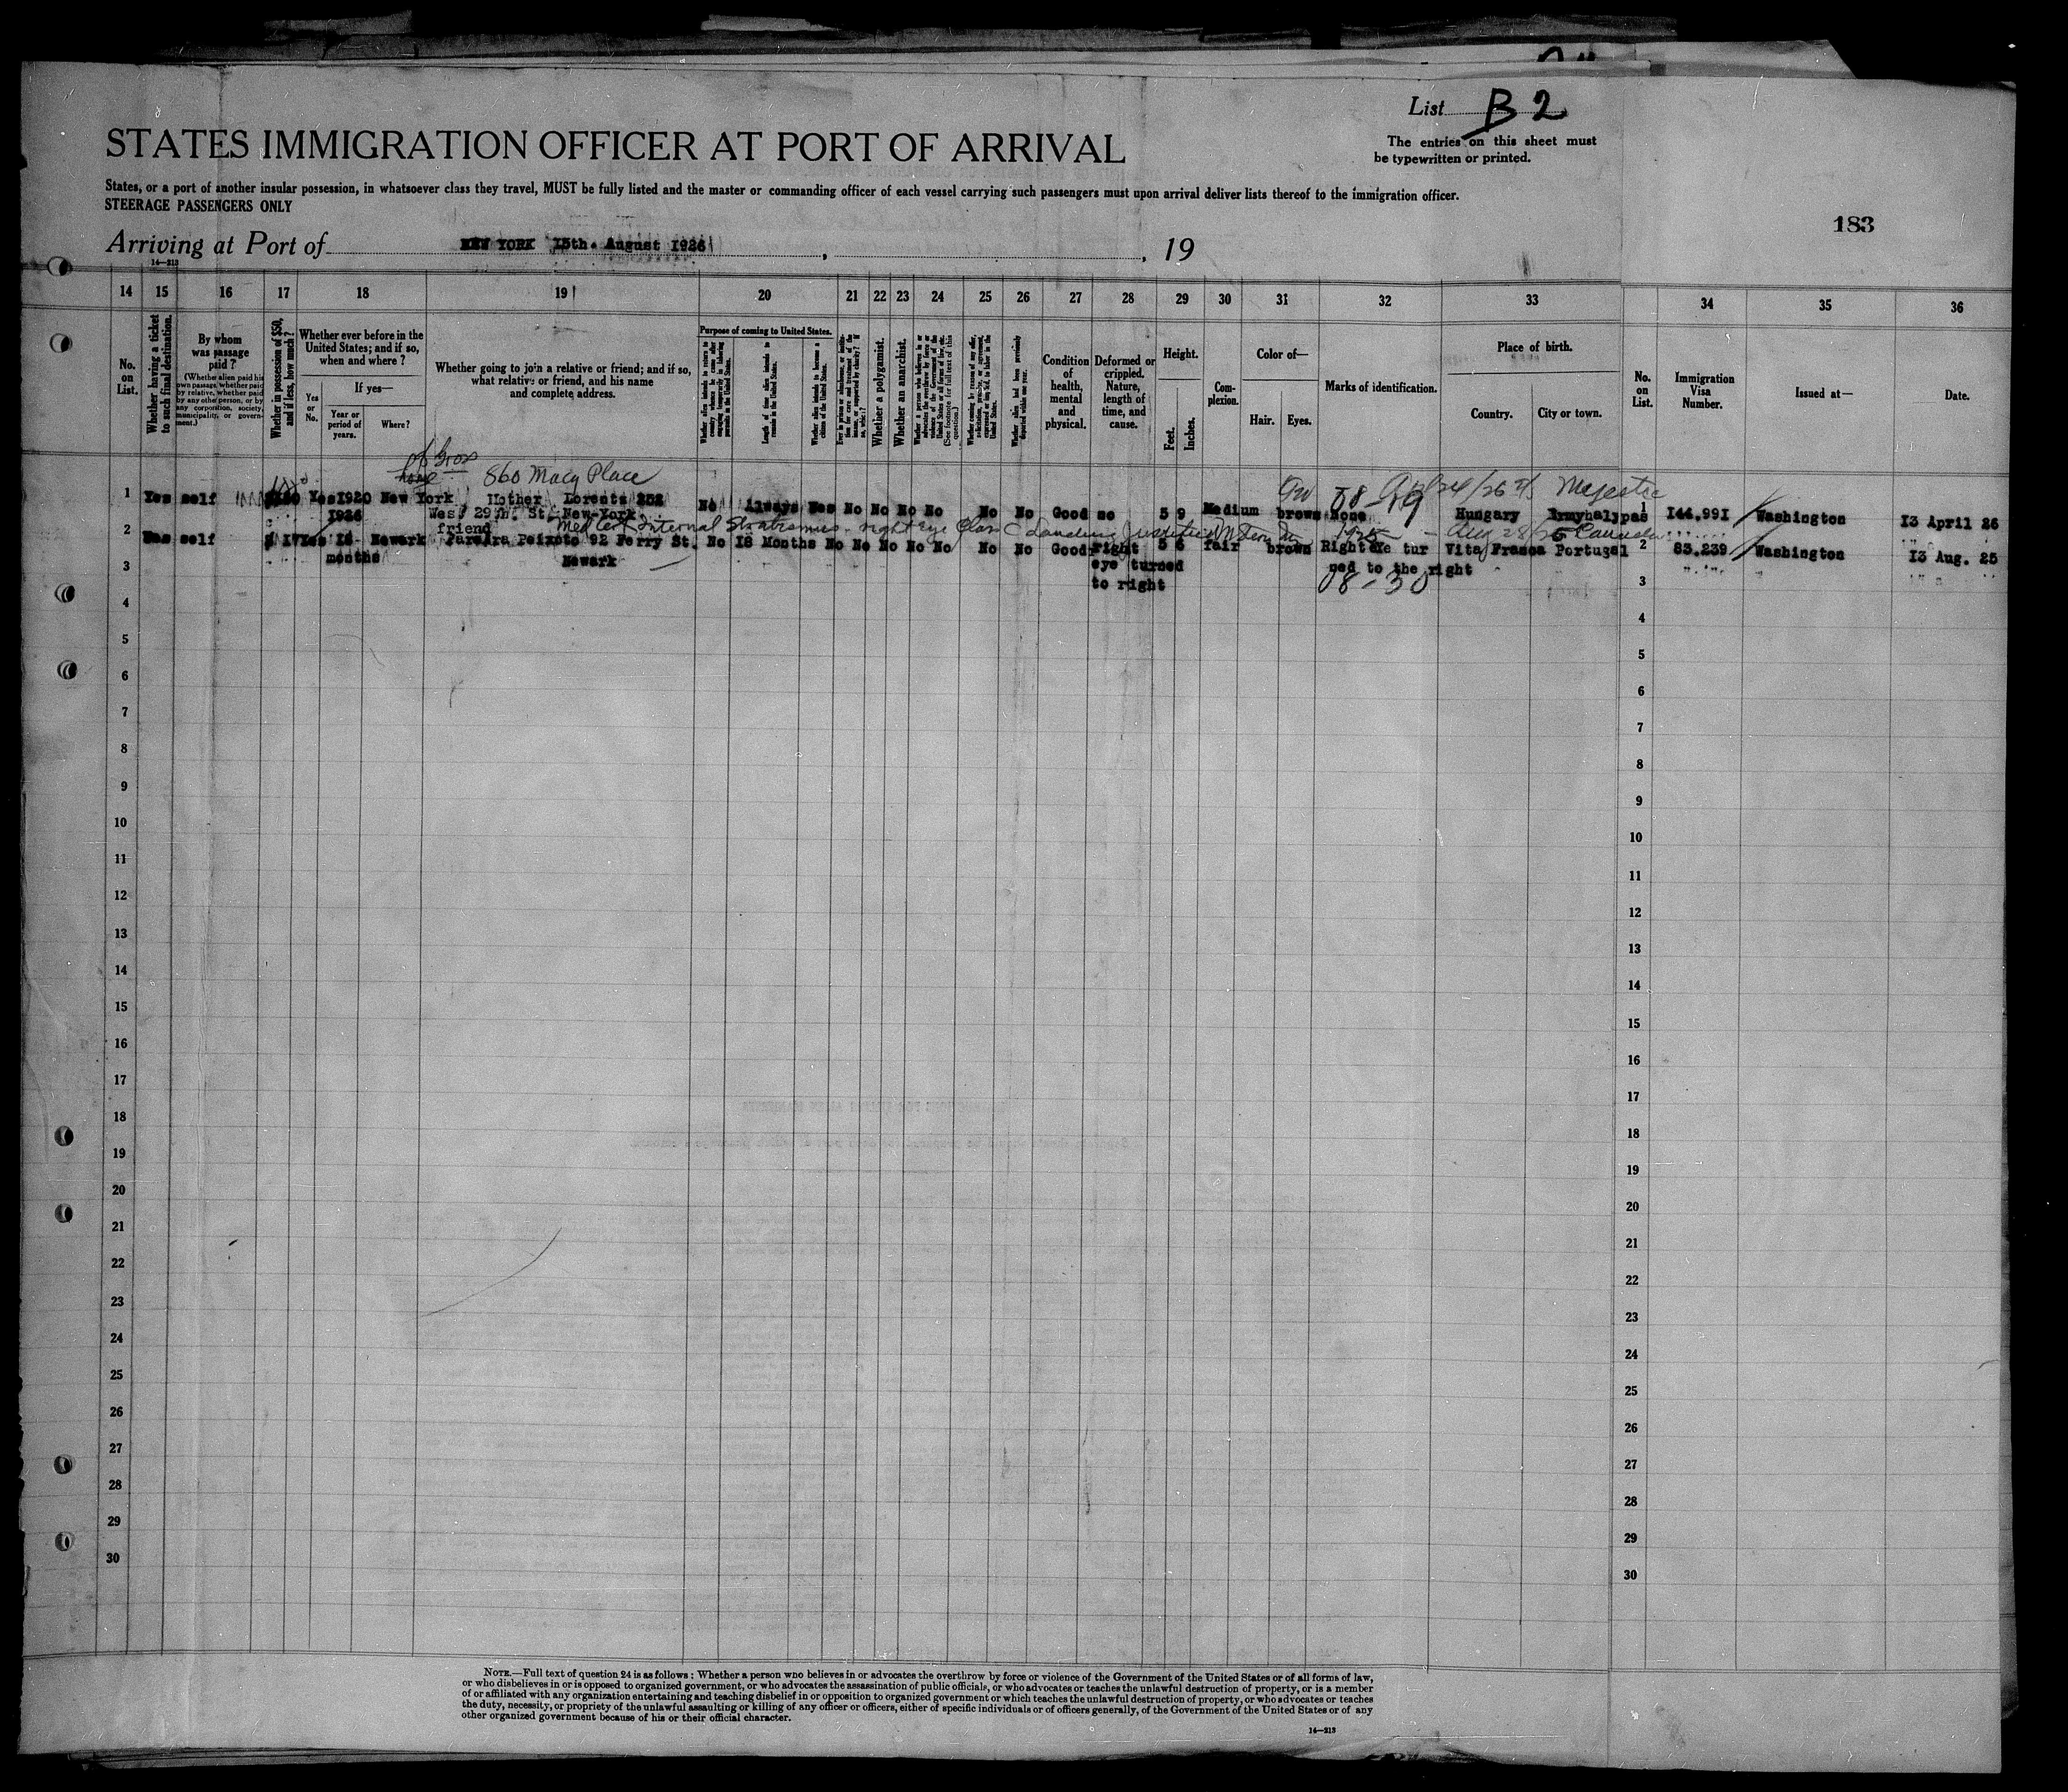 List B 2
The entries on this sheet must
be typewritten or printed.
STATES IMMIGRATION OFFICER AT PORT OF ARRIVAL
States, or a port of another insular possession, in whatsoever class they travel, MUST be fully listed and the master or commanding officer of each vessel carrying such passengers must upon arrival deliver lists thereof to the immigration officer.
STEERAGE PASSENGERS ONLY
183
Arriving at Port of NEW YORK 15th. August 1926 , , 19
14—213
14 15 16 17 18 19 20 21 22 23 24 25 26 27 28 29 30 31 32 33 34 35 36
No. on List.
Whether having a ticket to such final destination.
By whom was passage paid?
(Whether alien paid his own passage, whether paid by relative, whether paid by any other person, or by any corporation, society, municipality, or government.)
Whether in possession of $50, and if less, how much?
Whether ever before in the United States; and if so, when and where?
Yes or No.
If yes—
Year or period of years.
Where?
Whether going to join a relative or friend; and if so, what relative or friend, and his name and complete address.
Purpose of coming to United States.
Length of time alien intends to remain in the United States.
Whether alien intends to become a citizen of the United States.
Whether a polygamist.
Whether an anarchist.
(See footnote for full text of this question.)
Whether alien had been previously deported within one year.
Condition of health, mental and physical.
Deformed or crippled. Nature, length of time, and cause.
Height.
Feet. Inches.
Complexion.
Color of—
Hair. Eyes.
Marks of identification.
Place of birth.
Country. City or town.
No. on List.
Immigration Visa Number.
Issued at—
Date.
860 Macy Place
Apl 24/26 Majestic
1 Yes self Yes 1920 New York Mother Lorents 252 No Always Yes No No No No No No Good no 5 9 Medium brown None Hungary 1 144.991 Washington 13 April 26
1926 West 29th. St. New-York.
08-19
friend Med Cert Internal Strabismus - right eye Class C Landing Justified
1925 - Aug 28/25 Canada
2 self Yes 18 Newark Peixoto 92 Ferry St. No 18 Months No No No No No No No Good Right 5 6 fair brown Right Eye tur Portugal 2 83.239 Washington 13 Aug. 25
months Newark eye turned ned to the right
to right
08-30
3 3
4 4
5 5
6 6
7 7
8 8
9 9
10 10
11 11
12 12
13 13
14 14
15 15
16 16
17 17
18 18
19 19
20 20
21 21
22 22
23 23
24 24
25 25
26 26
27 27
28 28
29 29
30 30
NOTE.—Full text of question 24 is as follows: Whether a person who believes in or advocates the overthrow by force or violence of the Government of the United States or of all forms of law,
or who disbelieves in or is opposed to organized government, or who advocates the assassination of public officials, or who advocates or teaches the unlawful destruction of property, or is a member
of or affiliated with any organization entertaining and teaching disbelief in or opposition to organized government or which teaches the unlawful destruction of property, or who advocates or teaches
the duty, necessity, or propriety of the unlawful assaulting or killing of any officer or officers, either of specific individuals or of officers generally, of the Government of the United States or of any
other organized government because of his or their official character.
14—213